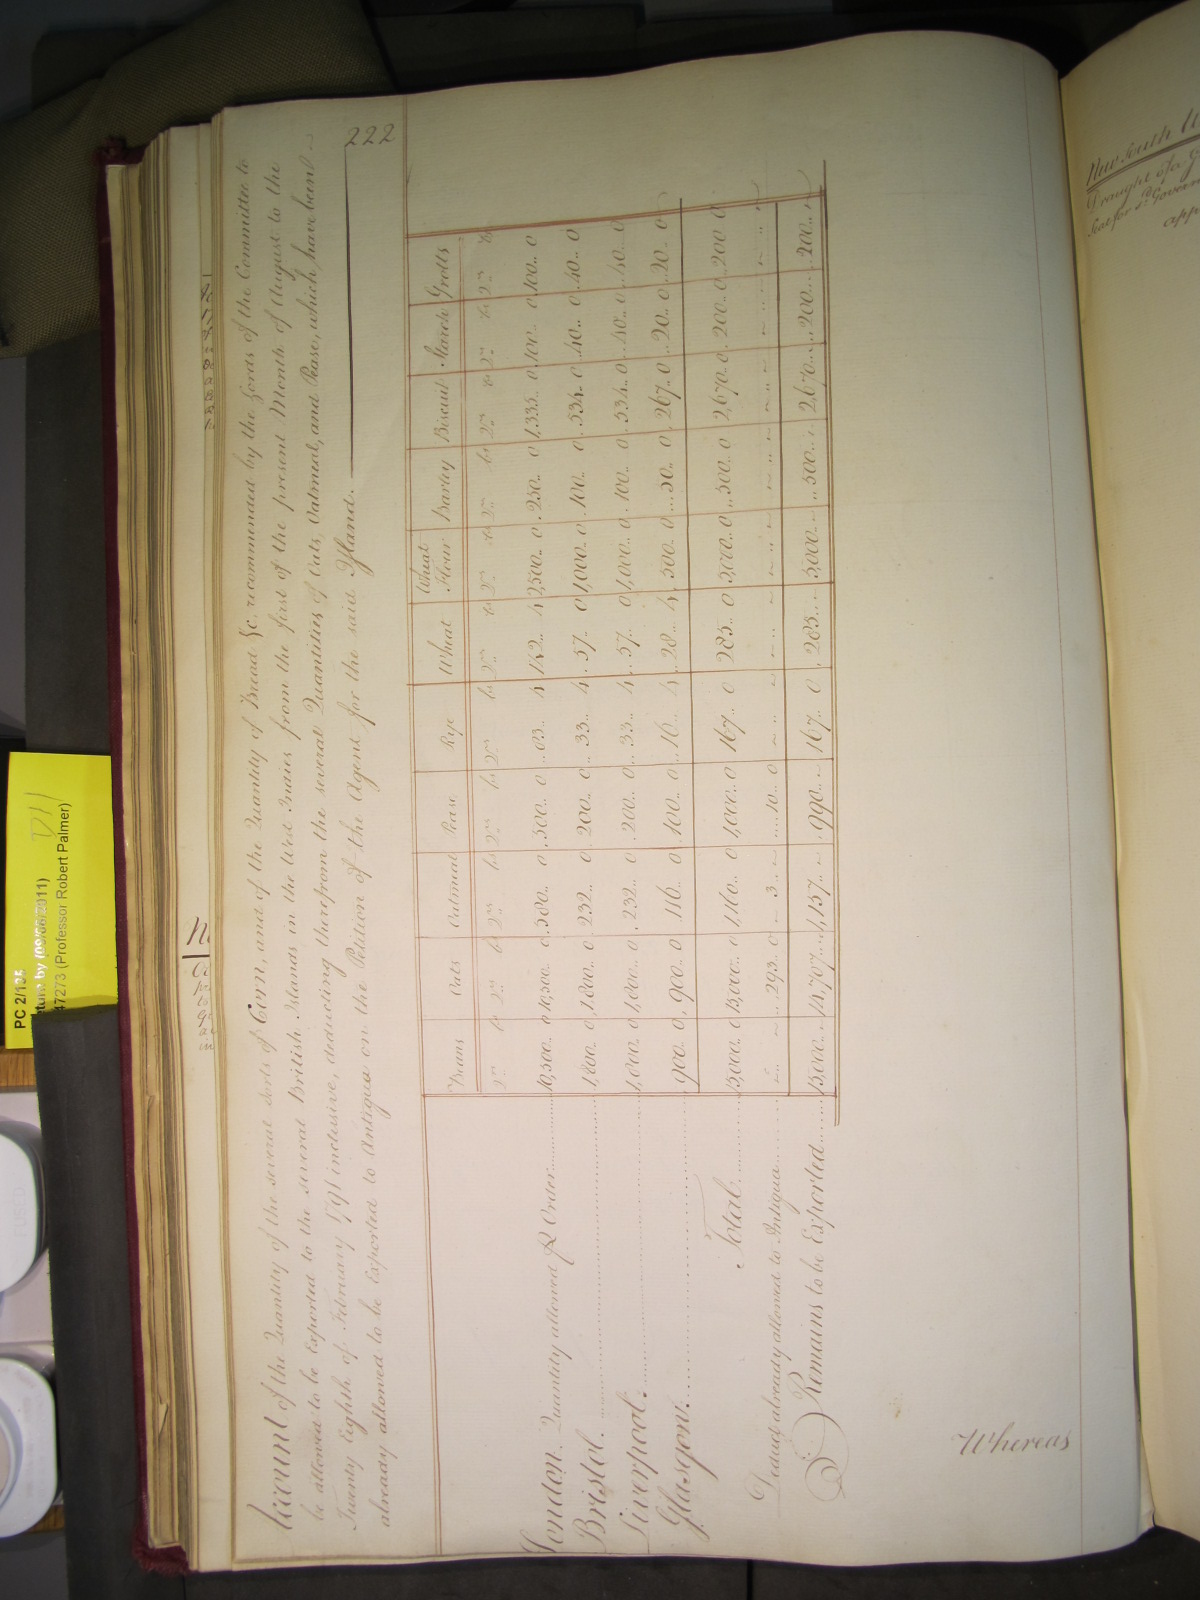 222
Account of the Quantity of the several sorts of Corn, and of the Quantity of Bread &c. recommended by the Lords of the Committee to
be allowed to be Exported to the several British Islands in the West Indies from the first of the present Month of August to the
Twenty Eighth of February 1791 inclusive, deducting therefrom the several Quantities of Oats, Oatmeal, and Pease, which have been
already allowed to be Exported to Antigua on the Petition of the Agent for the said Island.
Beans Oats Oatmeal Pease Rye Wheat Wheat Flour Barley Biscuit Starch Grotts
London. Quantity allowed ℘ Order 10,500.. 0 10,500.. 0 580.. 0 500.. 0 83.. 4 142.. 4 2,500.. 0 250.. 0 1,335.. 0 100.. 0 100.. 0
Bristol. 1,800.. 0 1,800.. 0 232.. 0 200.. 0 33.. 4 57.. 0 1,000.. 0 100.. 0 534.. 0 40.. 0 40.. 0
Liverpool. 1,800.. 0 1,800.. 0 232.. 0 200.. 0 33.. 4 57.. 0 1,000.. 0 100.. 0 534.. 0 40.. 0 40.. 0
Glasgow. 900.. 0 900.. 0 116.. 0 100.. 0 16.. 4 28.. 4 500.. 0 50.. 0 267.. 0 20.. 0 20.. 0
Total 15,000.. 0 15,000.. 0 1,160.. 0 1,000.. 0 167.. 0 285.. 0 5,000.. 0 500.. 0 2,670.. 0 200.. 0 200.. 0
Deduct already allowed to Antigua 293.. 0 3.. 10.. 0
Remains to be Exported 15,000.. 14,707.. 1,157.. 990.. 167.. 0 285.. 5,000.. 500.. 2,670.. 200.. 200..
Whereas
New South W
Draught of a G
Seal for ye Govern
app
PC 2/135
return by (09/06/2011)
47273 (Professor Robert Palmer)
D11
FUSED